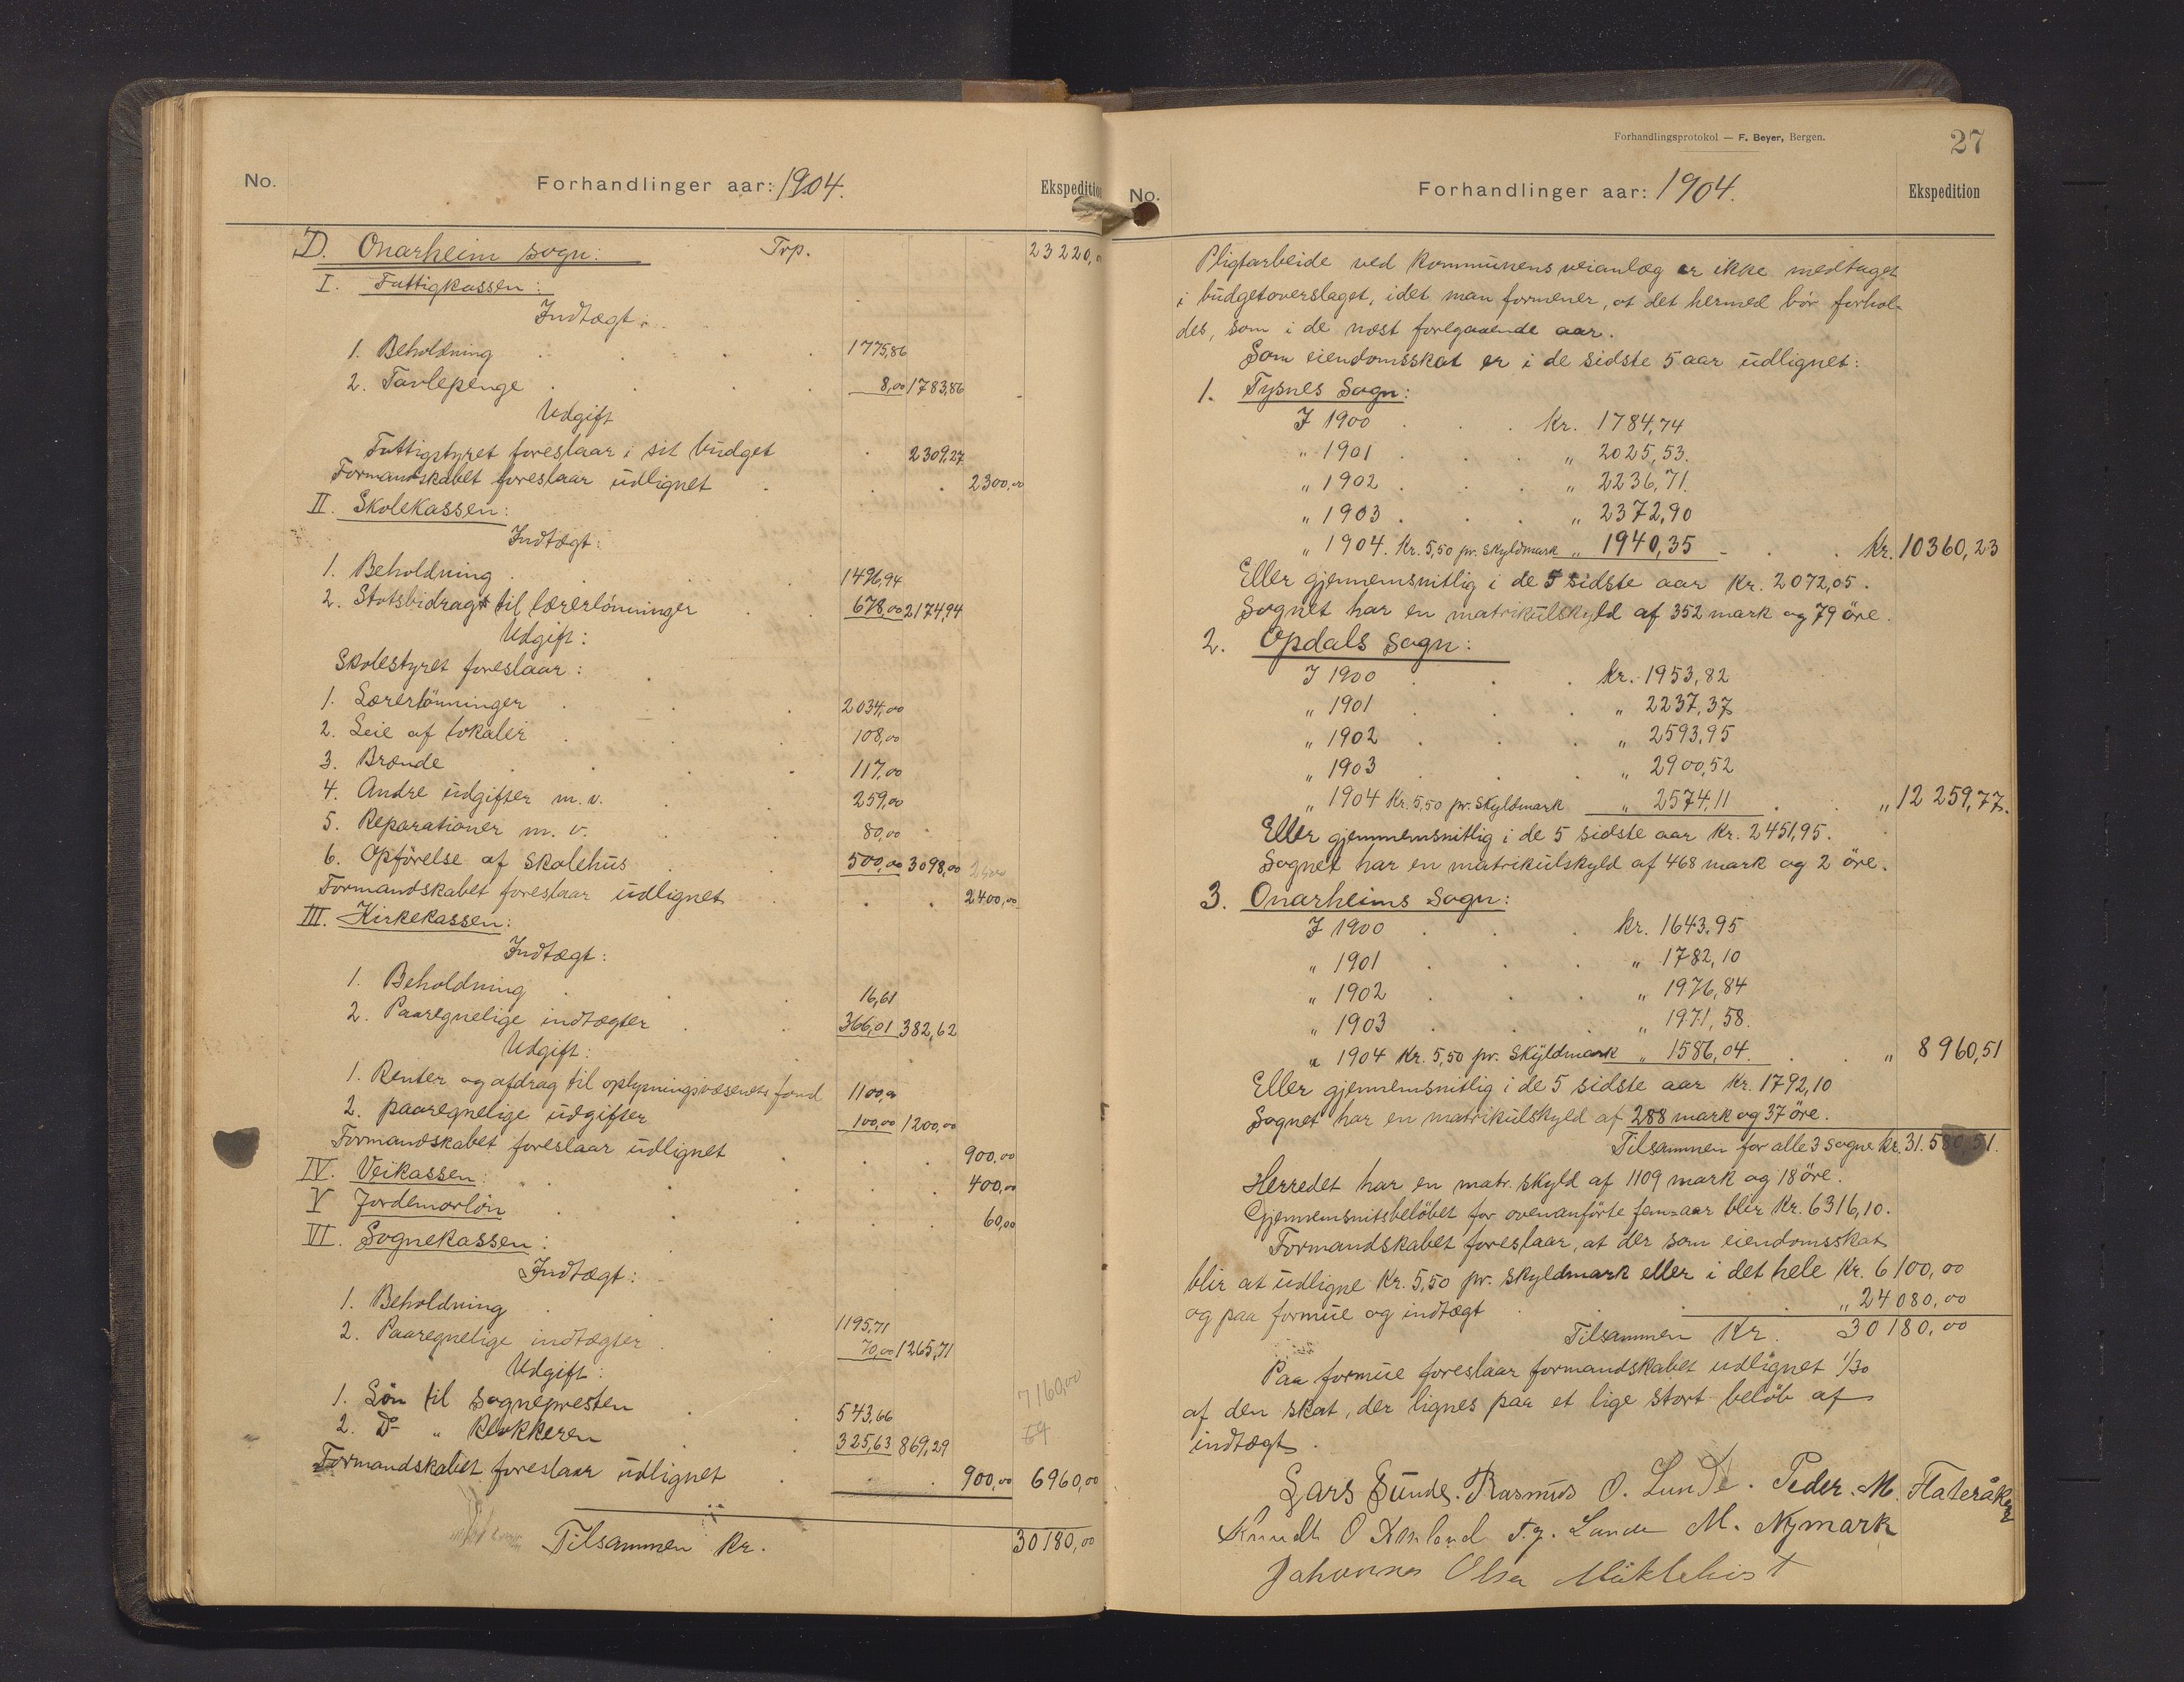 No. Forhandlinger aar: 1904. Ekspedition
D. Onarheim sogn: Trp. 23220,
I. Fattigkassen:
Indtægt:
1. Beholdning 1775,86
2. Tavlepenge 8,00 1783,86
Udgift
Fattigstyret foreslaar i sit budget 2309,27
Formandskabet foreslaar udlignet 2300,00
II. Skolekassen:
Indtægt:
1. Beholdning 1496,94
2. Statsbidrag til lærerlönninger 678,00 2174,94
Udgift:
Skolestyret foreslaar:
1. Lærerlönninger 2034,00
2. Leie af lokaler 108,00
3. Brænde 117,00
4. Andre udgifter m. v. 259,00
5. Reparationer m. v. 80,00
6. Opförelse af skolehus 500,00 3098,00
Formandskabet foreslaar udlignet 2400,00
III. Kirkekassen:
Indtægt:
1. Beholdning 16,61
2. Paaregnelige indtægter 366,01 382,62
Udgift:
1. Renter og afdrag til oplysningsvæsenets fond 1100,00
2. paaregnelige udgifter 100,00 1200,00
Formandskabet foreslaar udlignet 900,00
IV. Veikassen: " 400,00
V Jordemorlön 60,00
VI. Sognekassen:
Indtægt:
1. Beholdning 1195,71
2. Paaregnelige indtægter 70,00 1265,71
Udgift:
7160,00
1. Lön til sognepresten 543,66
2. Do " klokkeren 325,63 869,29
64
Formandskabet foreslaar udlignet 900,00 6960,00
Tilsammen kr. 30180,00
Forhandlingsprotokol — F. Beyer, Bergen.
27
No. Forhandlinger aar: 1904. Ekspedition
Pligtarbeide ved kommunens veianlæg er ikke medtaget
i budgetoverslaget, idet man formener, at det hermed bör forhol-
des, som i de næst foregaaende aar.
Som eiendomsskat er i de sidste 5 aar udlignet:
1. Tysnes Sogn:
I 1900 Kr. 1784,74
" 1901 " 2025,53.
" 1902 " 2236,71.
" 1903 " 2372,90
" 1904. Kr. 5,50 pr. skyldmark " 1940,35 Kr. 10360,23
Eller gjennemsnitlig i de 5 sidste aar Kr. 2072,05.
Sognet har en matrikulskyld af 352 mark og 79 öre.
2. Opdals Sogn:
I 1900 Kr. 1953,82
" 1901 " 2237,37
" 1902 " 2593,95
" 1903 " 2900,52
" 1904 Kr. 5,50 pr. skyldmark " 2574,11 " 12259,77.
Eller gjennemsnitlig i de 5 sidste aar Kr. 2451,95.
Sognet har en matrikulskyld af 468 mark og 2 öre.
3. Onarheims Sogn:
I 1900 Kr. 1643,95
" 1901 " 1782,10
" 1902 " 1976,84
" 1903 " 1971,58.
" 1904 Kr. 5,50 pr. Skyldmark " 1586,04. " 8960,51
Eller gjennemsnitlig i de 5 sidste aar Kr. 1792,10
Sognet har en matrikulskyld af 288 mark og 37 öre.
Tilsammen for alle 3 sogne kr. 31.580,51.
Herredet har en matr. skyld af 1109 mark og 18 öre.
Gjennemsnitsbelöbet for ovenanförte fem-aar blir Kr. 6316,10.
Formandskabet foreslaar, at der som eiendomsskat
blir at udligne Kr. 5,50 pr. skyldmark eller i det hele Kr. 6100,00
og paa formue og indtægt " 24080,00
Tilsammen Kr. 30180,00
Paa formue foreslaar formandskabet udlignet 1/30
af den skat, der lignes paa et lige stort belöb af
indtægt.
Lars Sunde. Rasmus O. Lunde. Peder. M. Flateråker
Knudt O T. J. Lande M. Nymark
Johannes Olsen